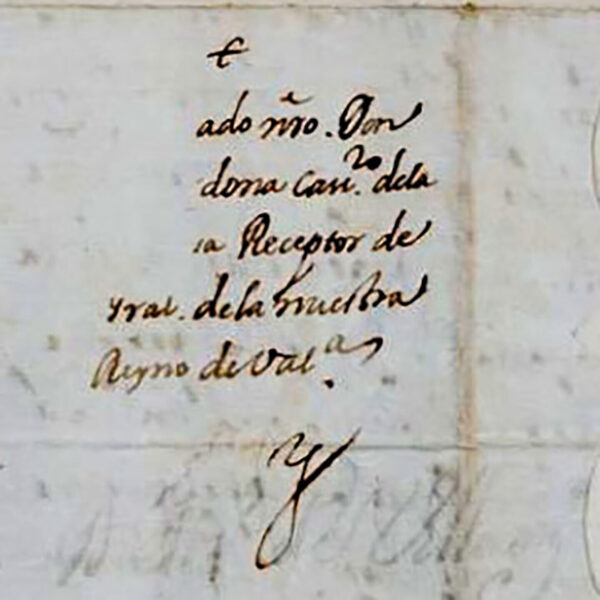 ado nr̃o. Don
dona Cauº. dela
ia Receptor de
yral. dela nuestra
Reyno de Valª.